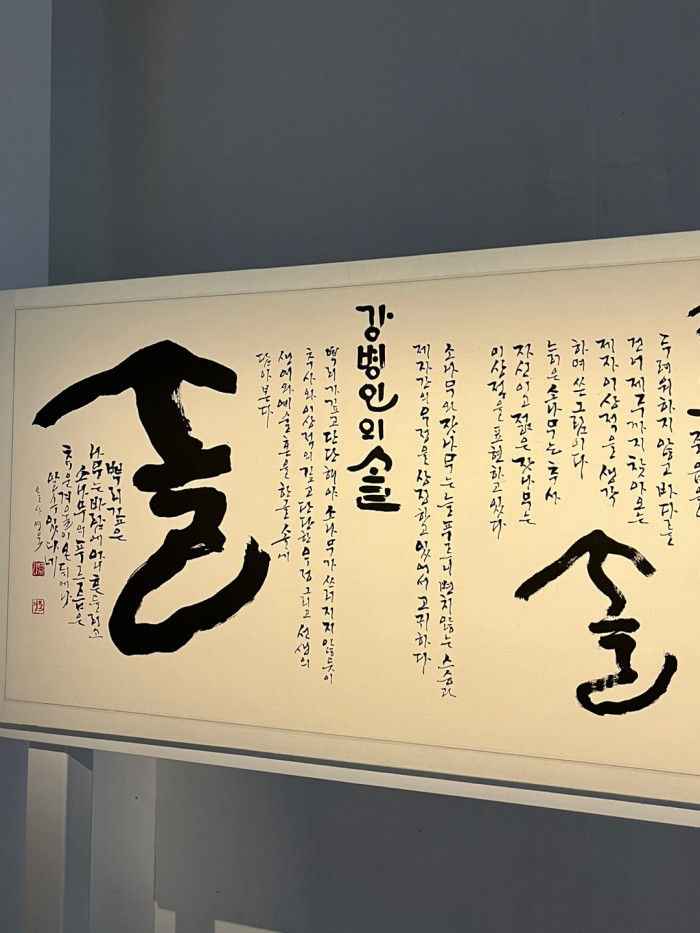 두려워하지 않고 바다를
건너 제주까지 찾아온
제자 이상적을 생각
하며 쓴 그림이다
늙은 소나무는 추사
자신이고 젊은 잣나무는
이상적을 표현하고 있다
솔
소나무와 잣나무는 늘 푸르니 변치 않는 스승과
제자간의 우정을 상징하고 있어서 고귀하다
강병인의 솔
뿌리가 깊고 단단해야 소나무가 쓰러지지 않듯이
추사와 이상적의 깊고 단단한 우정 그리고 선생의
생애와 예술혼을 한글 솔에
담아본다
솔
뿌리깊은
나무는 바람에 아니 흔들리고
소나무의 푸르름은
추운 겨울이 온 뒤에나
알 수 있다네